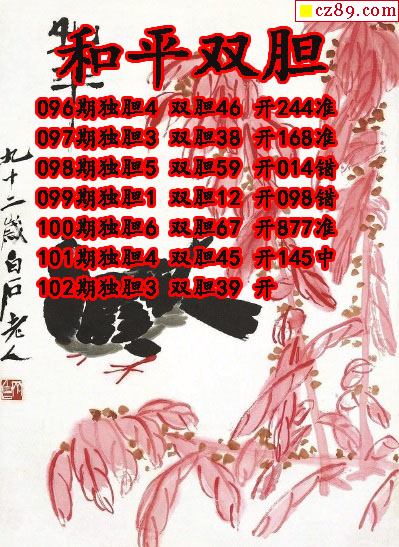 cz89.com
和平双胆
096期独胆4 双胆46 开244准
097期独胆3 双胆38 开168准
098期独胆5 双胆59 开014错
099期独胆1 双胆12 开098错
100期独胆6 双胆67 开877准
101期独胆4 双胆45 开145中
102期独胆3 双胆39 开
九十二岁白石老人